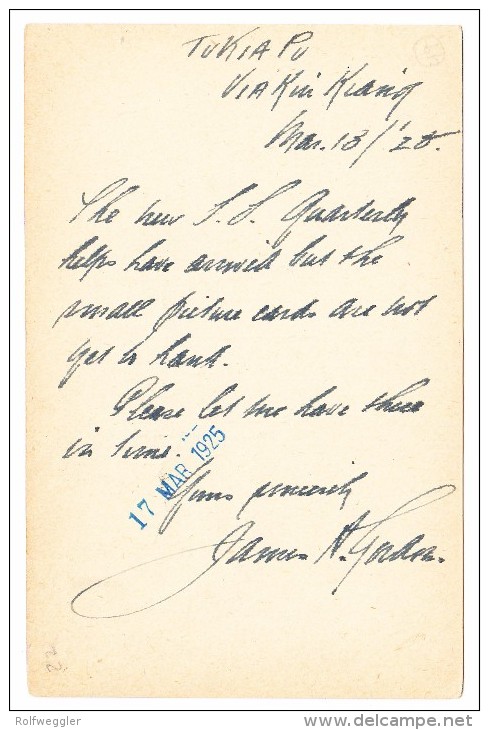 TUKIA PU
VIA Kiu Kiang
Mar. 13/'25.
The new S.S. Quarterly
helps have arrived but the
small picture cards are not
yet to hand.
Please let me have these
in time.
17 MAR 1925
Yours sincerely
James A. Gordon.
22
Rolfweggler
www.delcampe.net